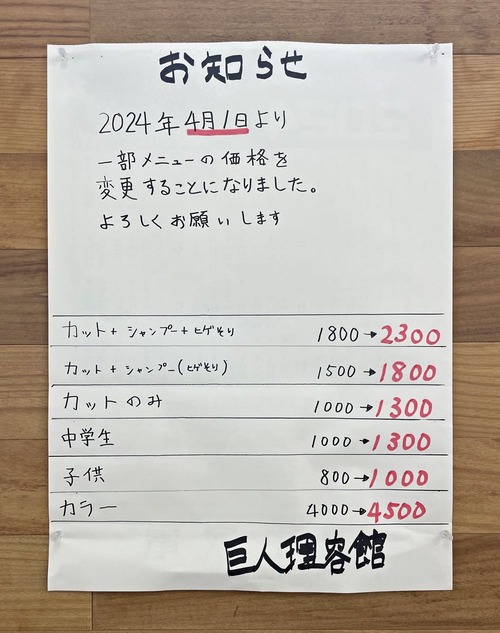 お知らせ
2024年4月1日より
一部メニューの価格を
変更することになりました。
よろしくお願いします
カット+シャンプー+ヒゲそり 1800→2300
カット+シャンプー(ヒゲそり) 1500→1800
カットのみ 1000→1300
中学生 1000→1300
子供 800→1000
カラー 4000→4500
巨人理容館